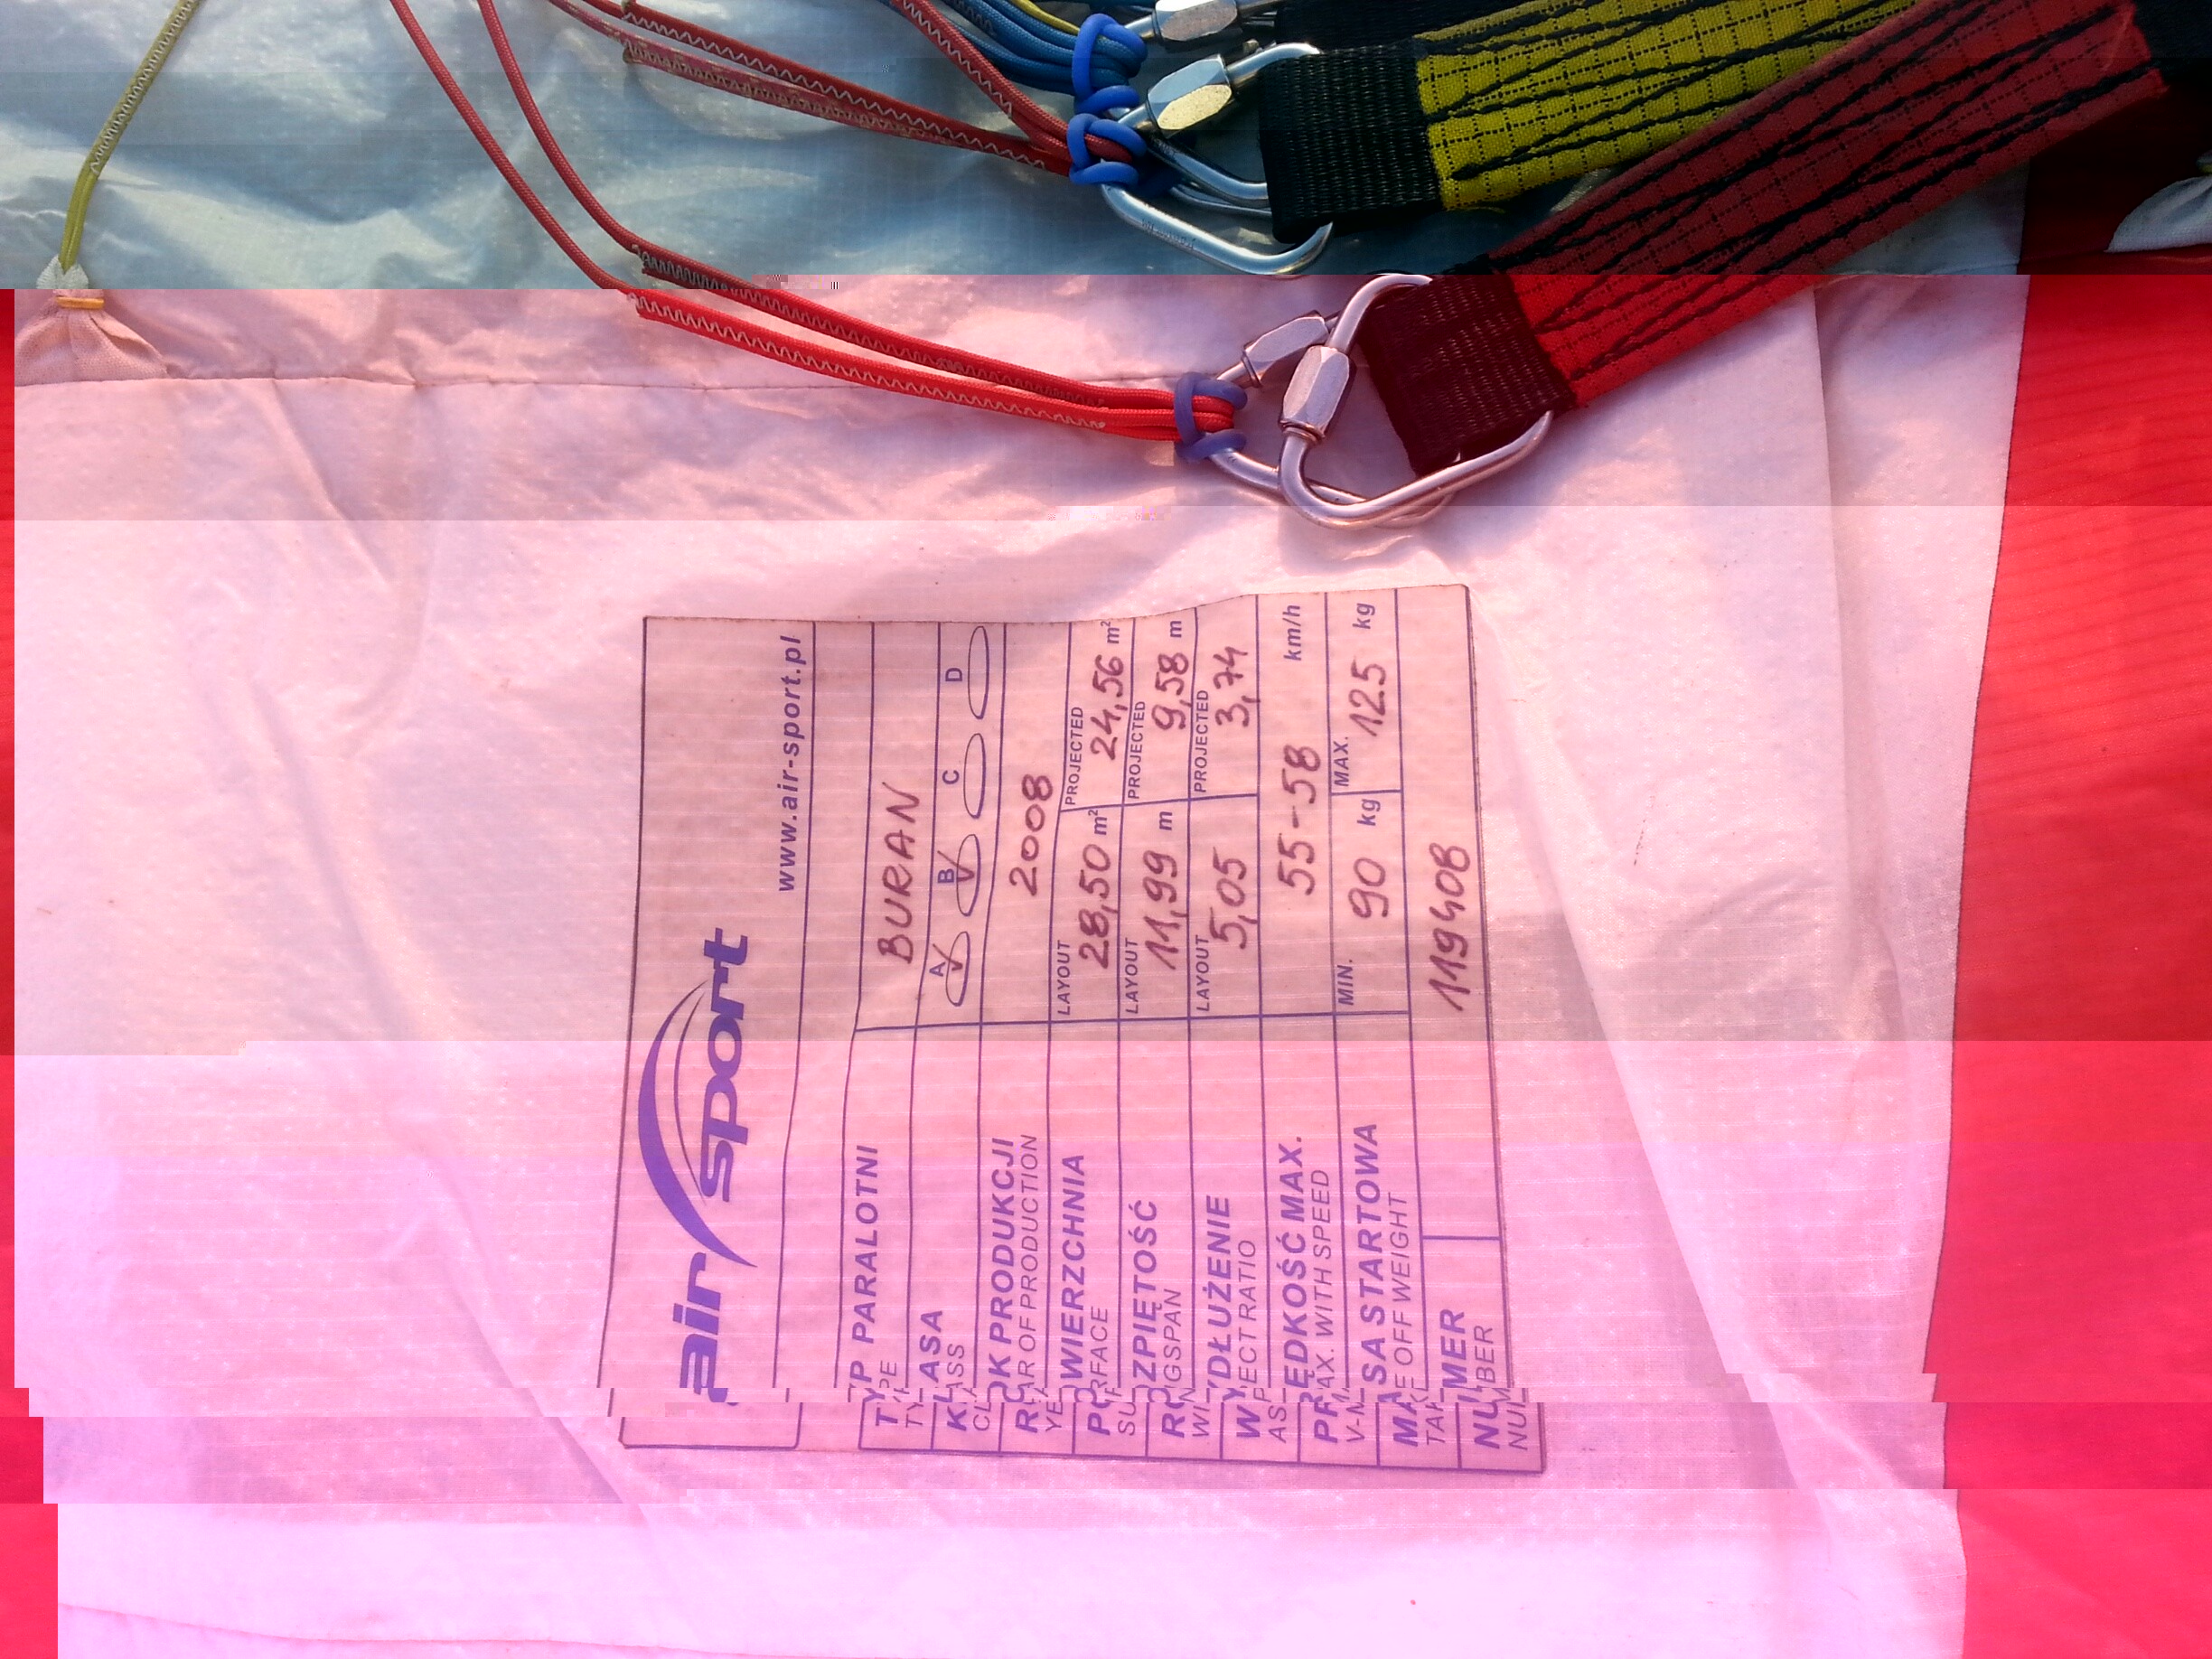 air sport
www.air-sport.pl
TYP PARALOTNI BURAN
TYPE
KLASA A B C D
CLASS
ROK PRODUKCJI 2008
YEAR OF PRODUCTION
POWIERZCHNIA LAYOUT 28,50 m² PROJECTED 24,56 m²
SURFACE
ROZPIĘTOŚĆ LAYOUT 11,99 m PROJECTED 9,58 m
WINGSPAN
WYDŁUŻENIE LAYOUT 5,05 PROJECTED 3,74
ASPECT RATIO
PRĘDKOŚĆ MAX. 55-58 km/h
V-MAX. WITH SPEED
MASA STARTOWA MIN. 90 kg MAX. 125 kg
TAKE OFF WEIGHT
NUMER 119408
NUMBER